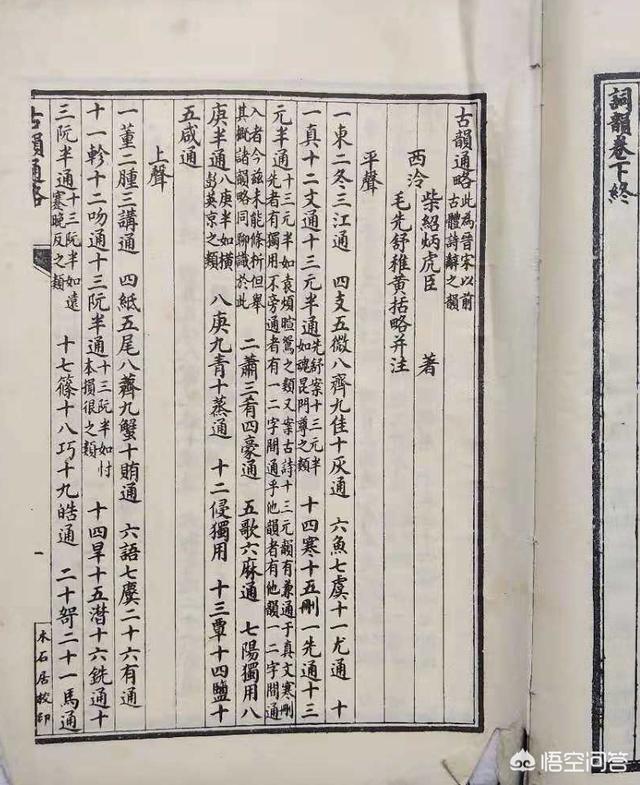 詞韻卷下終
古韻通略此為晉宋以前
古體詩辭之韻
西泠 柴紹炳虎臣
毛先舒稚黃括略并注
著
平聲
一東二冬三江通 四支五微八齊九佳十灰通 六魚七虞十一尤通 十
一真十二文通十三元半通先舒案十三元半
如魂昆門尊之類 十四寒十五刪一先通十三
元半通十三元半如袁煩暄鴛之類又案古詩十三元韻有兼通于真文寒刪
先者有獨用不旁通者有一二字間通乎他韻者有他韻一二字間通
入者今茲未能條析但舉
其概諸韻略同聊識於此 二蕭三肴四豪通 五歌六麻通 七陽獨用八
庚半通八庚半如橫
彭英京之類 八庚九青十蒸通 十二侵獨用 十三覃十四鹽十
五咸通
上聲
一董二腫三講通 四紙五尾八薺九蟹十賄通 六語七麌二十六有通
十一軫十二吻通十三阮半通十三阮半如忖
本損很之類 十四旱十五潸十六銑通十
三阮半通十三阮半如遠
蹇晚反之類 十七篠十八巧十九皓通 二十哿二十一馬通
古韻通略
一
木石居校印
悟空问答